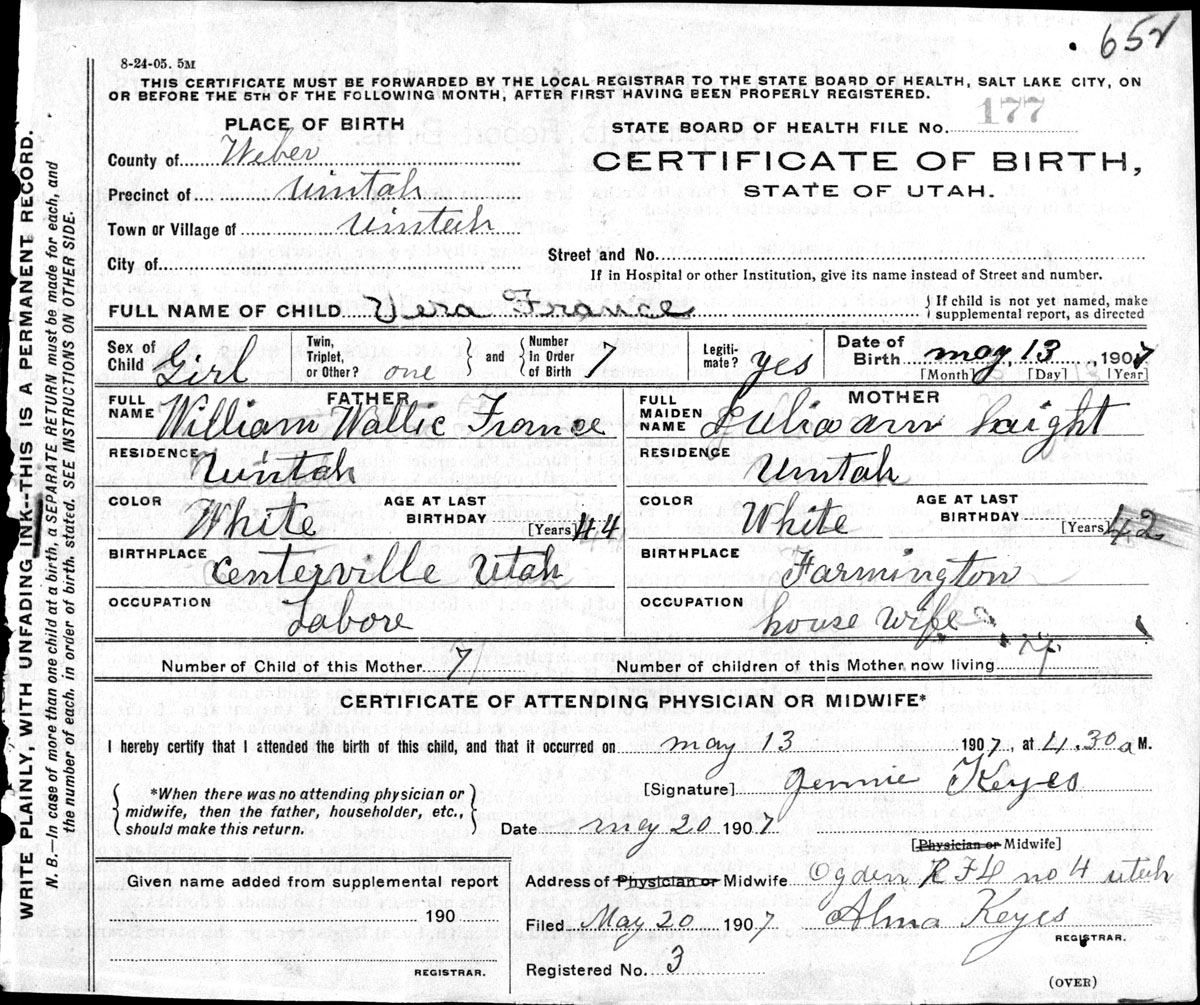 652
8-24-05. 5M
THIS CERTIFICATE MUST BE FORWARDED BY THE LOCAL REGISTRAR TO THE STATE BOARD OF HEALTH, SALT LAKE CITY, ON
OR BEFORE THE 5TH OF THE FOLLOWING MONTH, AFTER FIRST HAVING BEEN PROPERLY REGISTERED.
PLACE OF BIRTH
STATE BOARD OF HEALTH FILE No. 177
County of Weber
CERTIFICATE OF BIRTH,
STATE OF UTAH.
Precinct of Uintah
Town or Village of Uintah
City of
Street and No.
If in Hospital or other Institution, give its name instead of Street and number.
FULL NAME OF CHILD Vera France
If child is not yet named, make
supplemental report, as directed
Sex of Child Girl Twin, Triplet, or Other? one and Number in Order of Birth 7 Legiti- mate? yes Date of Birth may 13 1907
[Month] [Day] [Year]
FATHER
FULL NAME William Wallie France
MOTHER
FULL MAIDEN NAME Juliaann Knight
RESIDENCE Uintah
RESIDENCE Uintah
COLOR White AGE AT LAST BIRTHDAY [Years] 44
COLOR White AGE AT LAST BIRTHDAY [Years] 42
BIRTHPLACE Centerville Utah
BIRTHPLACE Farmington
OCCUPATION Labore
OCCUPATION house wife
Number of Child of this Mother 7
Number of children of this Mother now living 7
CERTIFICATE OF ATTENDING PHYSICIAN OR MIDWIFE*
I hereby certify that I attended the birth of this child, and that it occurred on may 13 1907, at 4.30 a M.
[Signature] Jennie Keyes
*When there was no attending physician or
midwife, then the father, householder, etc.,
should make this return.
Date may 20 1907
[Physician or Midwife]
Given name added from supplemental report
190
REGISTRAR.
Address of Physician or Midwife Ogden R F D no 4 utah
Filed May 20 1907 Alma Keyes
REGISTRAR.
Registered No. 3
(OVER)
WRITE PLAINLY, WITH UNFADING INK--THIS IS A PERMANENT RECORD.
N. B.—In case of more than one child at a birth, a SEPARATE RETURN must be made for each, and
the number of each, in order of birth, stated. SEE INSTRUCTIONS ON OTHER SIDE.